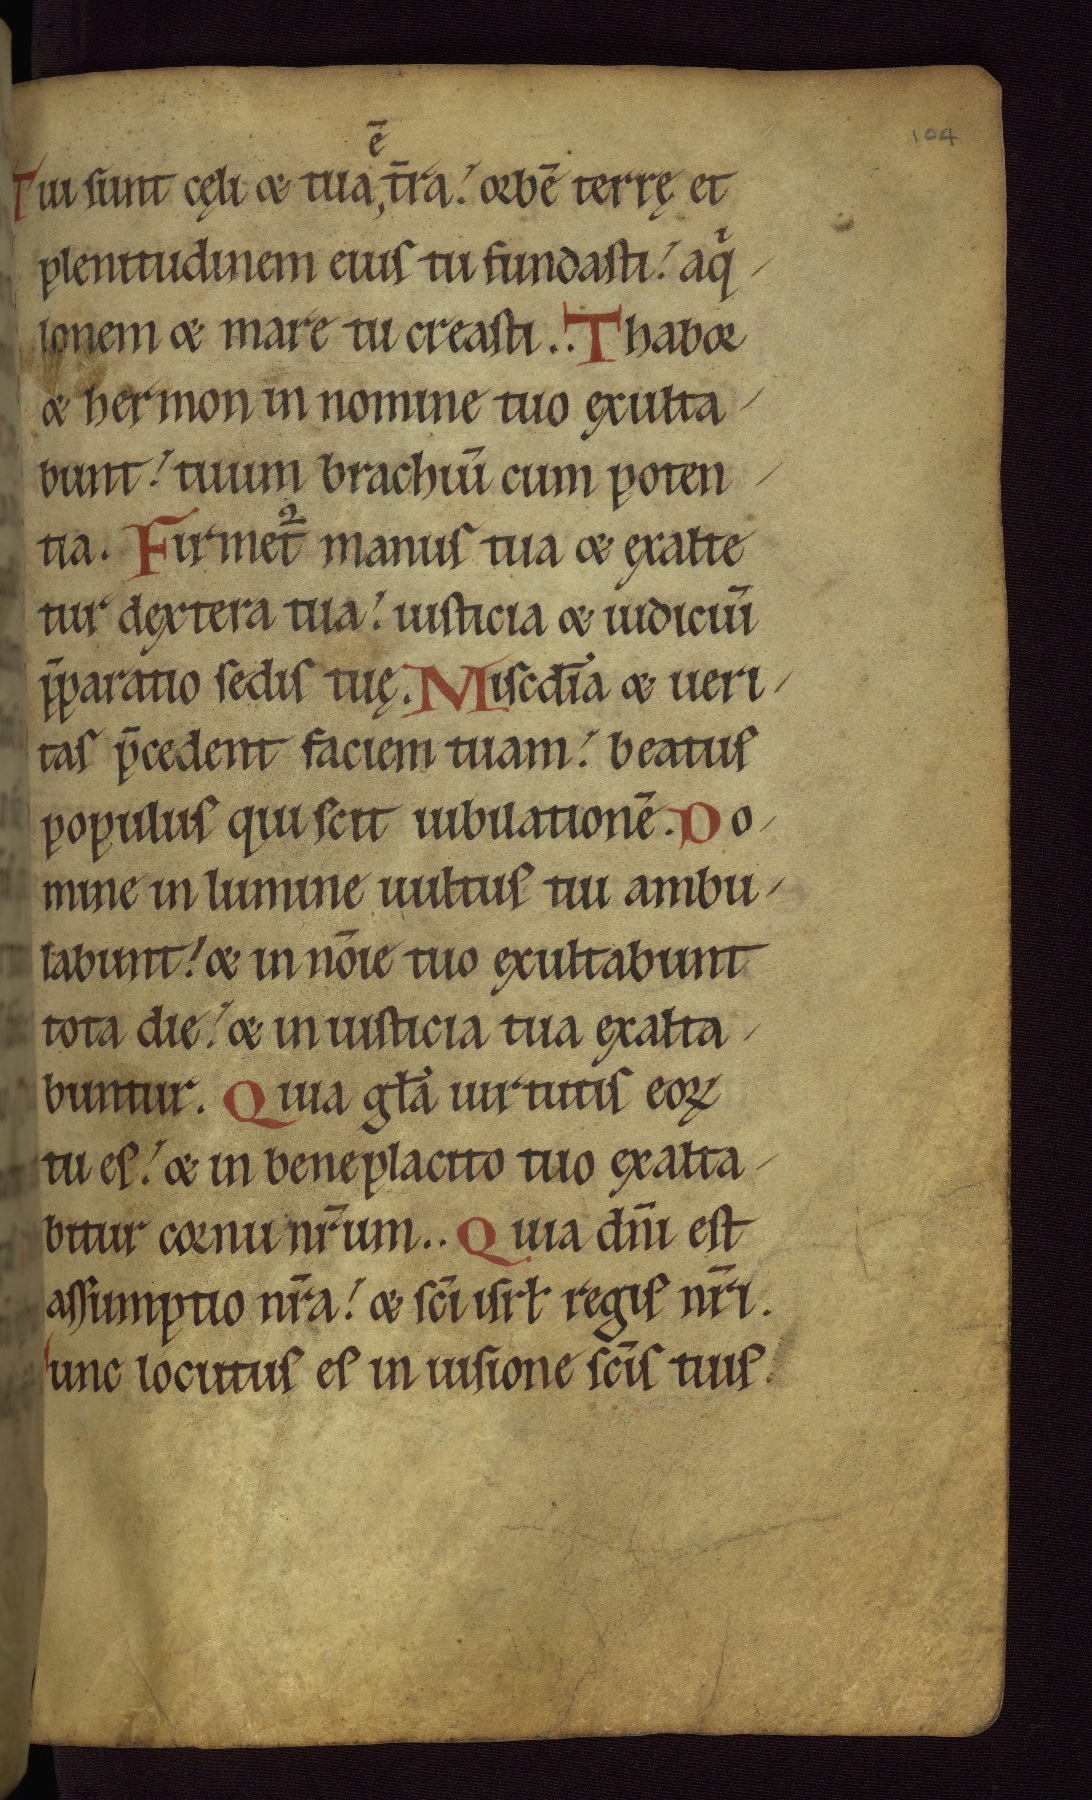 104
ē
Tui sunt cęli & tua, t̄ra! orbē terrę et
plenitudinem eius tu fundasti! aqⁱ-
lonem & mare tu creasti.. Thabor
& hermon in nomine tuo exulta-
bunt! tuum brachiū cum poten-
tia. Firmet̄ᷣ manus tua & exalte
tur dextera tua! iusticia & iudiciū
p̄paratio sedis tuę. Misc̄dia & ueri-
tas p̄cedent faciem tuam! beatus
populus qui scit iubilationē. Do-
mine in lumine uultus tui ambu-
labunt! & in nōie tuo exultabunt
tota die! & in iusticia tua exalta-
buntur. Quia gł̄a uirtutis eoꝝ
tu es! & in beneplacito tuo exalta-
bitur cornu nr̄um.. Quia dn̄i est
assumptio nr̄a! & sc̄i isrł regis nr̄i.
unc locutus es in uisione sc̄is tuis!